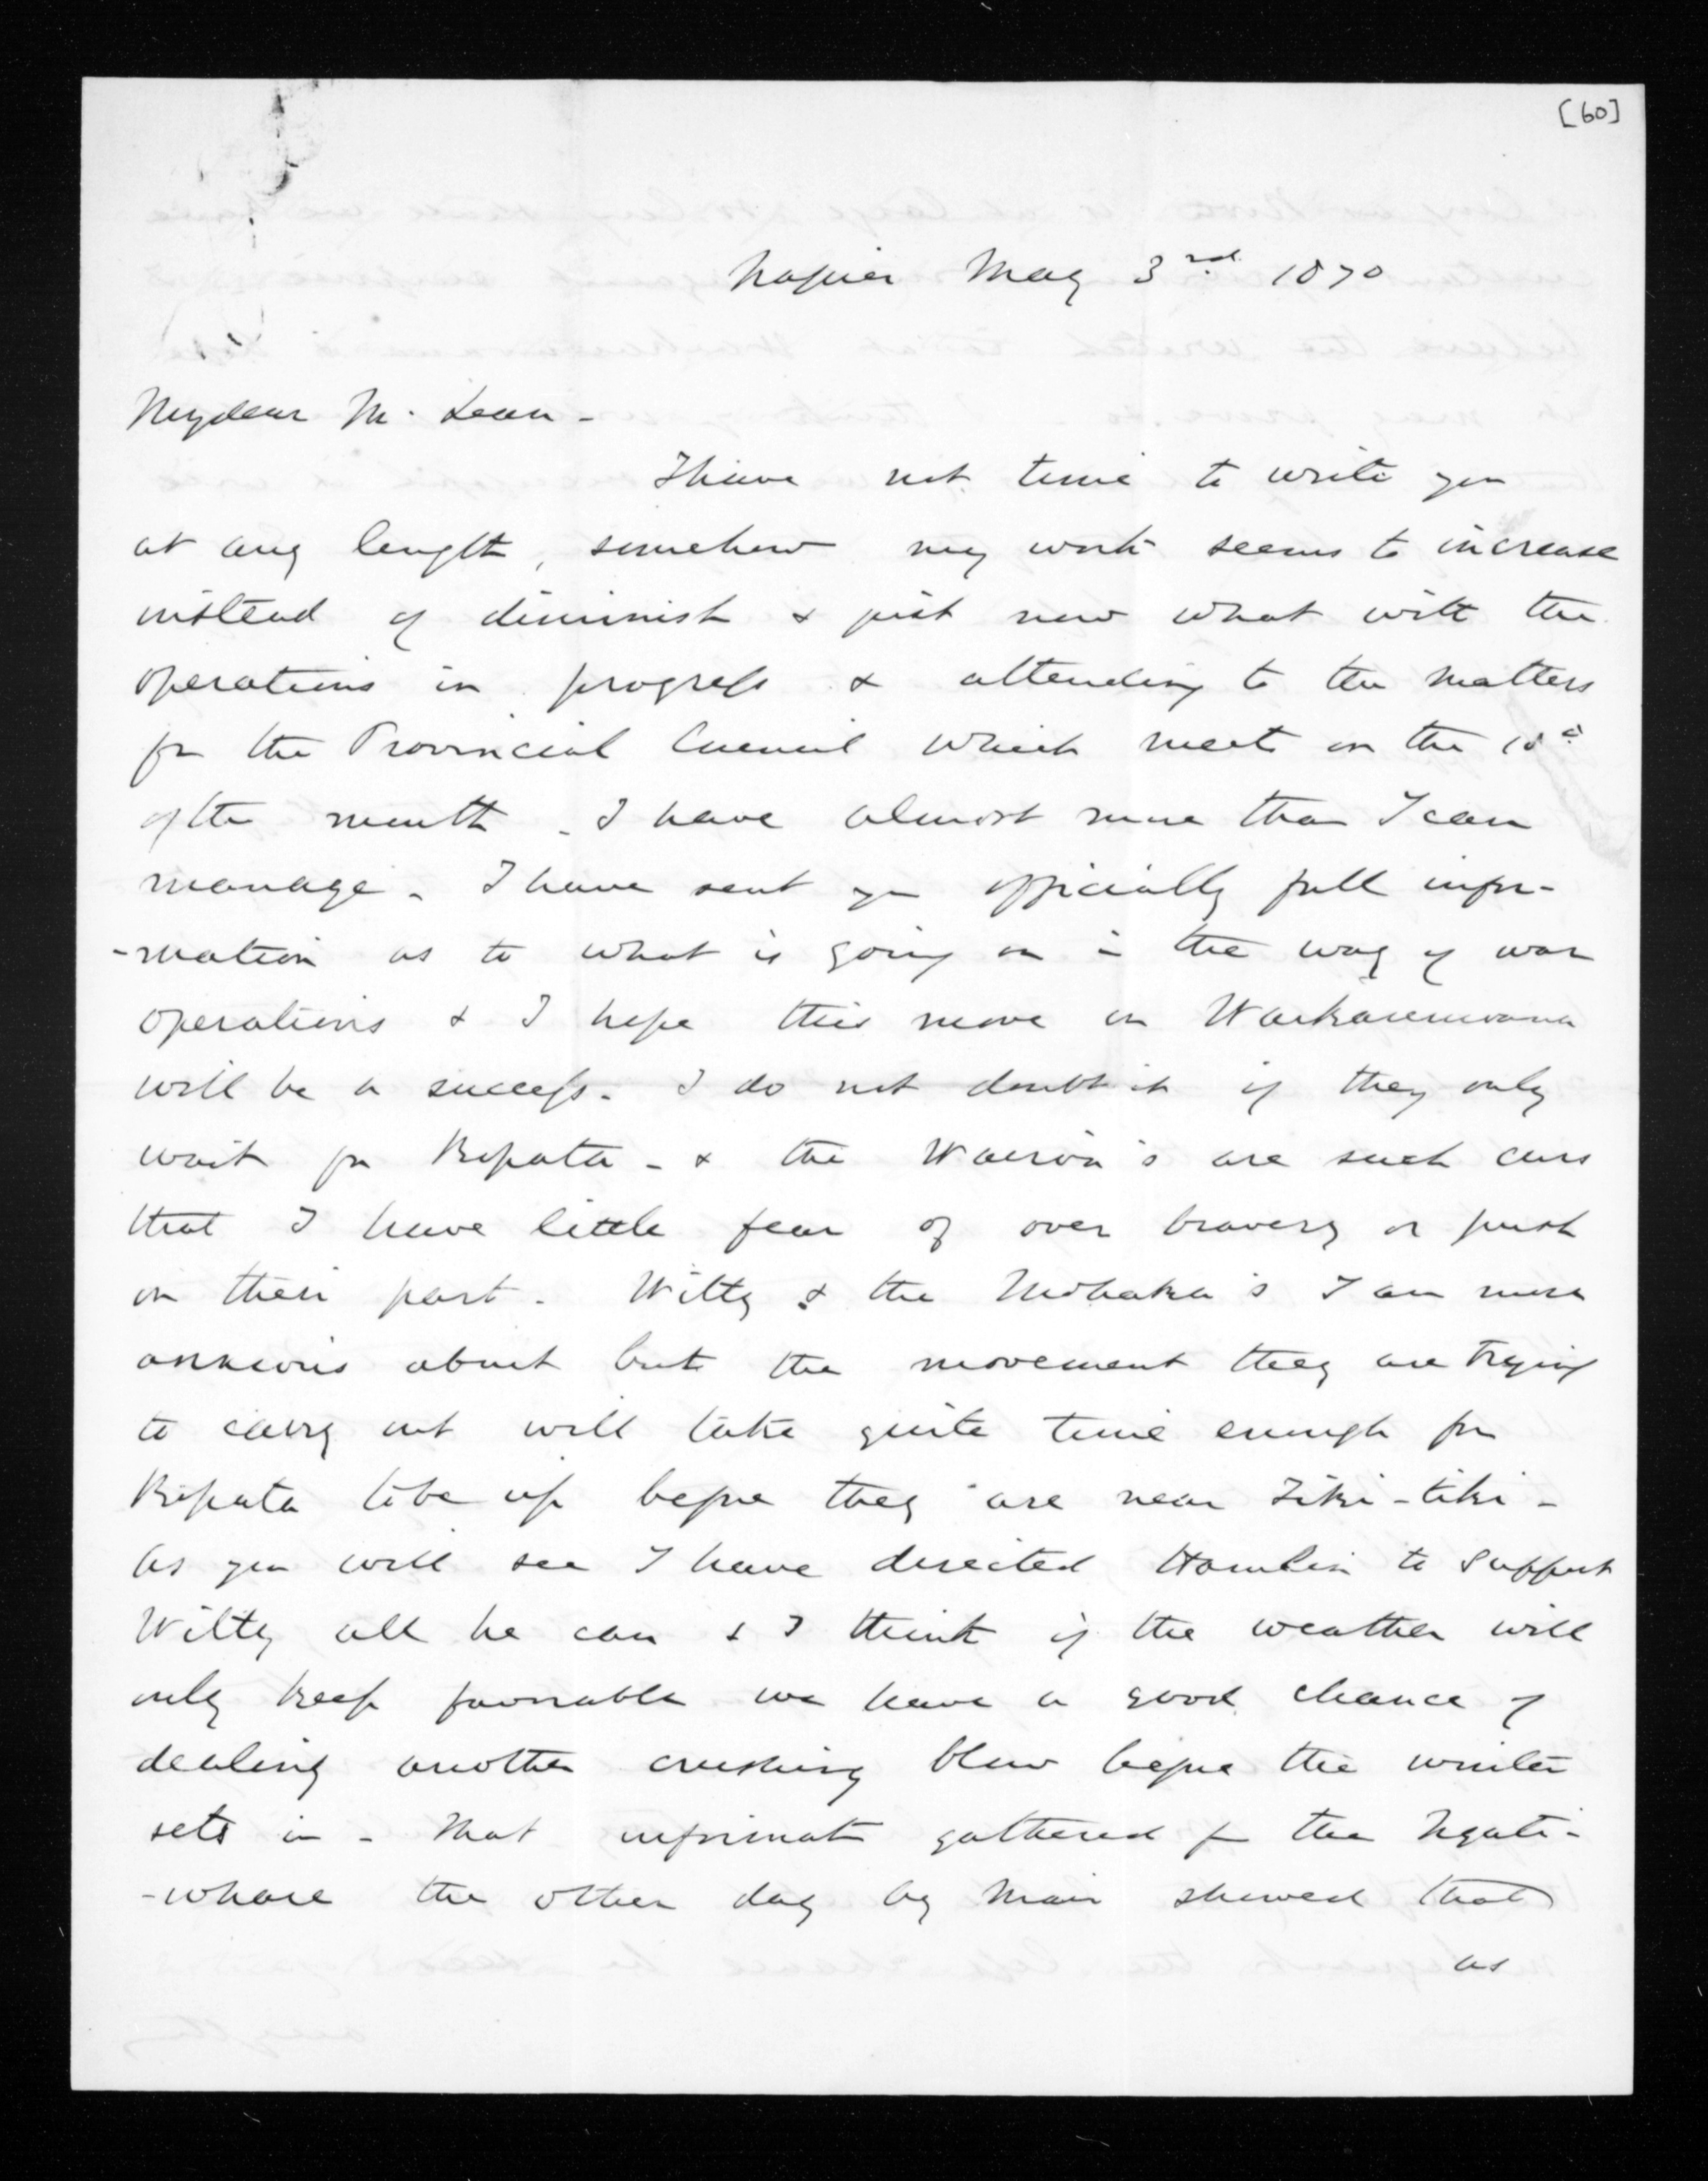 [60]
Napier May 3rd 1870
My dear McLean -
I have not time to write you
at any length, somehow my work seems to increase
instead of diminish & just now what with the
operations in progress & attending to the matters
for the Provincial Council which meets on the
of the month - I have almost more than I can
manage. I have sent you officially full infor-
-mation as to what is going on in the way of war
operations & I hope this move on Waikaremoana
will be a success. I do not doubt it if they only
wait for Ropata - & the Wairoa's are such curs
that I have little fear of over bravery or push
on their part. Witty & the Mohaka's I am more
anxious about but the movement they are trying
to carry out will take quite time enough for
Ropata to be up before they are near Tiki-tiki -
As you will see I have directed Hamlin to support
Witty all he can & I think if the weather will
only keep favorable we have a good chance of
dealing another crushing blow before the winter
sets in - That informatn gathered fm the Ngati-
-whare the other day by Mair shewed that
as